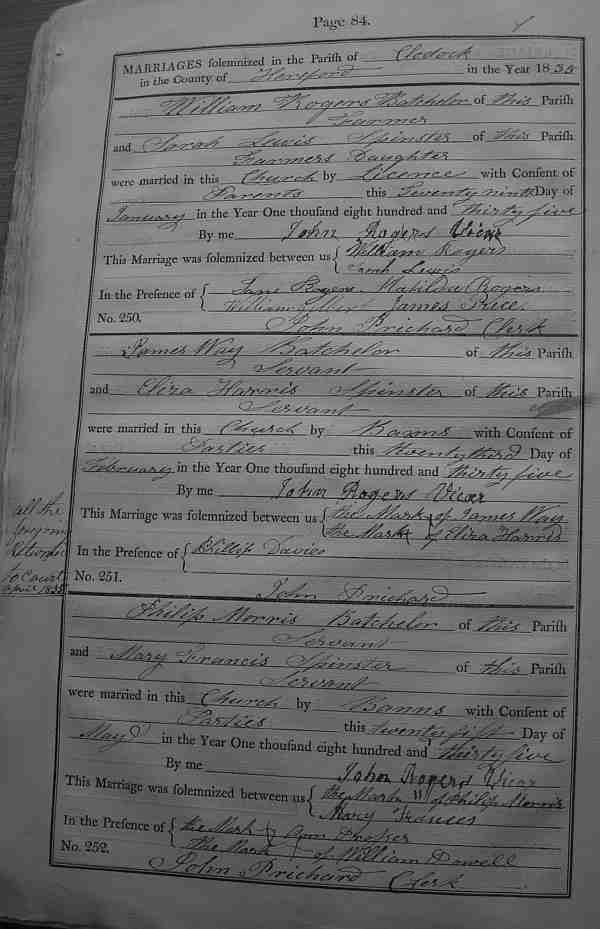 Page 84.
MARRIAGES solemnized in the Parish of Clodock
in the County of Hereford in the Year 1835
William Rogers Batchelor of this Parish
Farmer
and Sarah Lewis Spinster of this Parish
Farmers Daughter
were married in this Church by Licence with Consent of
Parents this Twenty ninth Day of
January in the Year One thousand eight hundred and thirty five
By me John Rogers Vicar
This Marriage was solemnized between us { William Rogers
Sarah Lewis
In the Presence of { Jane Rogers Matilda Rogers
William Gilbert James Price
No. 250.
John Prichard Clerk
James Way Batchelor of this Parish
Servant
and Eliza Harris Spinster of this Parish
Servant
were married in this Church by Banns with Consent of
Parties this Twenty third Day of
February in the Year One thousand eight hundred and thirty five
By me John Rogers Vicar
This Marriage was solemnized between us { the Mark of James Way
the Mark of Eliza Harris
In the Presence of { Phillip Davies
No. 251.
John Prichard
all the
to Court
1835
Philip Morris Batchelor of this Parish
Servant
and Mary Francis Spinster of this Parish
Servant
were married in this Church by Banns with Consent of
Parties this twenty fift Day of
May in the Year One thousand eight hundred and thirty five
By me John Rogers Vicar
This Marriage was solemnized between us { the Mark of Philip Morris
Mary Frances
In the Presence of { the Mark Ann Prosser
the Mark of William Dowell
No. 252.
John Prichard Clerk